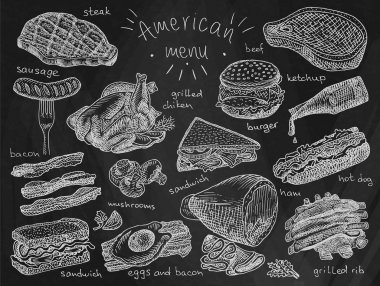 American
menu
steak
beef
sausage
grilled
chiken
ketchup
burger
bacon
sandwich
ham
hot dog
mushrooms
sandwich
eggs and bacon
grilled ribs